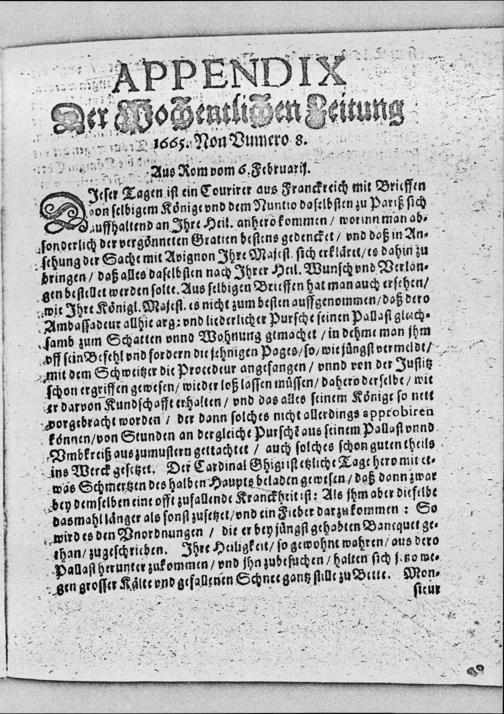 APPENDIX
Der Wochentlichen Zeitung
1665. Non Vumero 8.
Aus Rom vom 6. Februarij.
DJeser Tagen ist ein Courirer aus Franckreich mit Brieffen
von selbigem Könige vnd dem Nuntio daselbsten zu Pariß sich
auffhaltend an Jhre Heil. anhero kommen / worinn man ab-
sonderlich der vergönneten Gratien bestens gedencket / vnd daß in An-
sehung der Sache mit Avignon Jhre Majest. sich erkläret / es dahin zu
bringen / daß alles daselbsten nach Jhrer Heil. Wunsch vnd Verlan-
gen bestellet werden solte. Aus selbigen Brieffen hat man auch ersehen /
wie Jhre Königl. Majest. es nicht zum besten auffgenommen / daß dero
Ambassadeur allhie arg: vnd liederlicher Pursche seinen Pallast gleich-
samb zum Schatten vnnd Wohnung gemachet / in dehme man jhm
vff sein Befehl vnd fordern die jehnigen Pages / so / wie jüngst vermeldet /
mit dem Schweitzer die Procedeur angefangen / vnnd von der Justitz
schon ergriffen gewesen / wieder loß lassen müssen / dahero derselbe / wie
er darvon Kundschafft erhalten / vnd das alles seinem Könige so nett
vorgebracht worden / der dann solches nicht allerdings approbiren
können / von Stunden an dergleiche Pursche aus seinem Pallast vnnd
Vmbkreiß auszumustern getrachtet / auch solches schon guten theils
ins Werck gesetzet. Der Cardinal Ghigi ist etzliche Tage hero mit et-
was Schmertzen des halben Haupts beladen gewesen / daß dann zwar
bey demselben eine offt zufallende Kranckheit ist: Als jhm aber dieselbe
dasmahl länger als sonst zusetzet / vnd ein Fieber darzu kommen: So
wird es den Vnordnungen / die er bey jüngst gehabten Banequet ge-
than / zugeschrieben. Jhre Heiligkeit / so gewohnt wahren / aus dero
Pallast herunter zukommen / vnd jhn zubesuchen / halten sich jetzo we-
gen grosser Kälte vnd gefallenen Schnee gantz stille zu Bette. Mon-
sieur